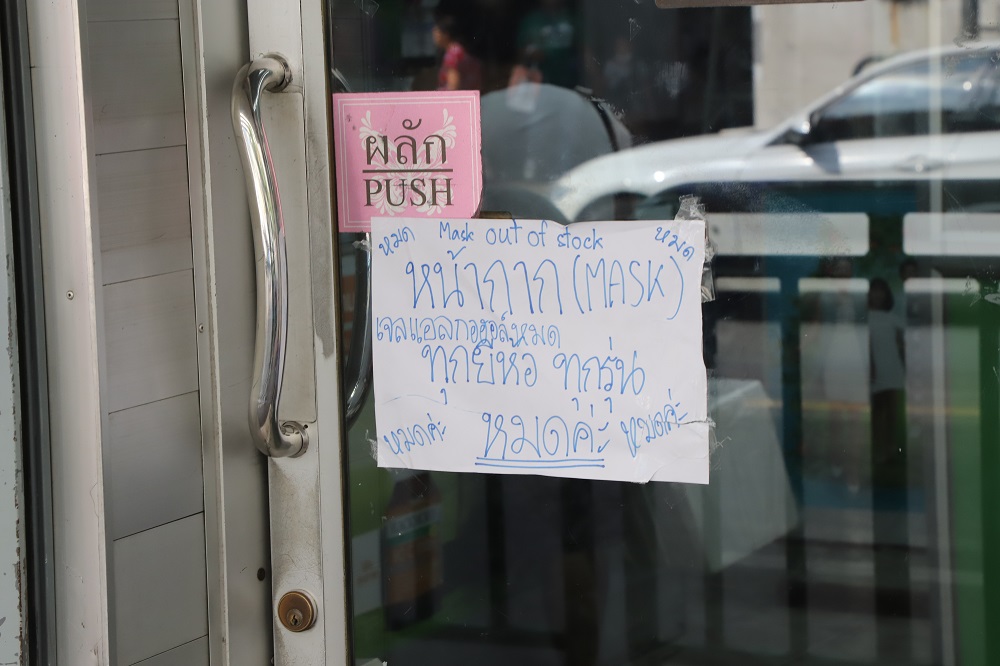 ผลัก
PUSH
หมด Mask out of stock หมด
หน้ากาก (MASK)
เจลแอลกอฮอล์หมด
ทุกยี่ห้อ ทุกรุ่น
หมดค่ะ หมดค่ะ หมดค่ะ